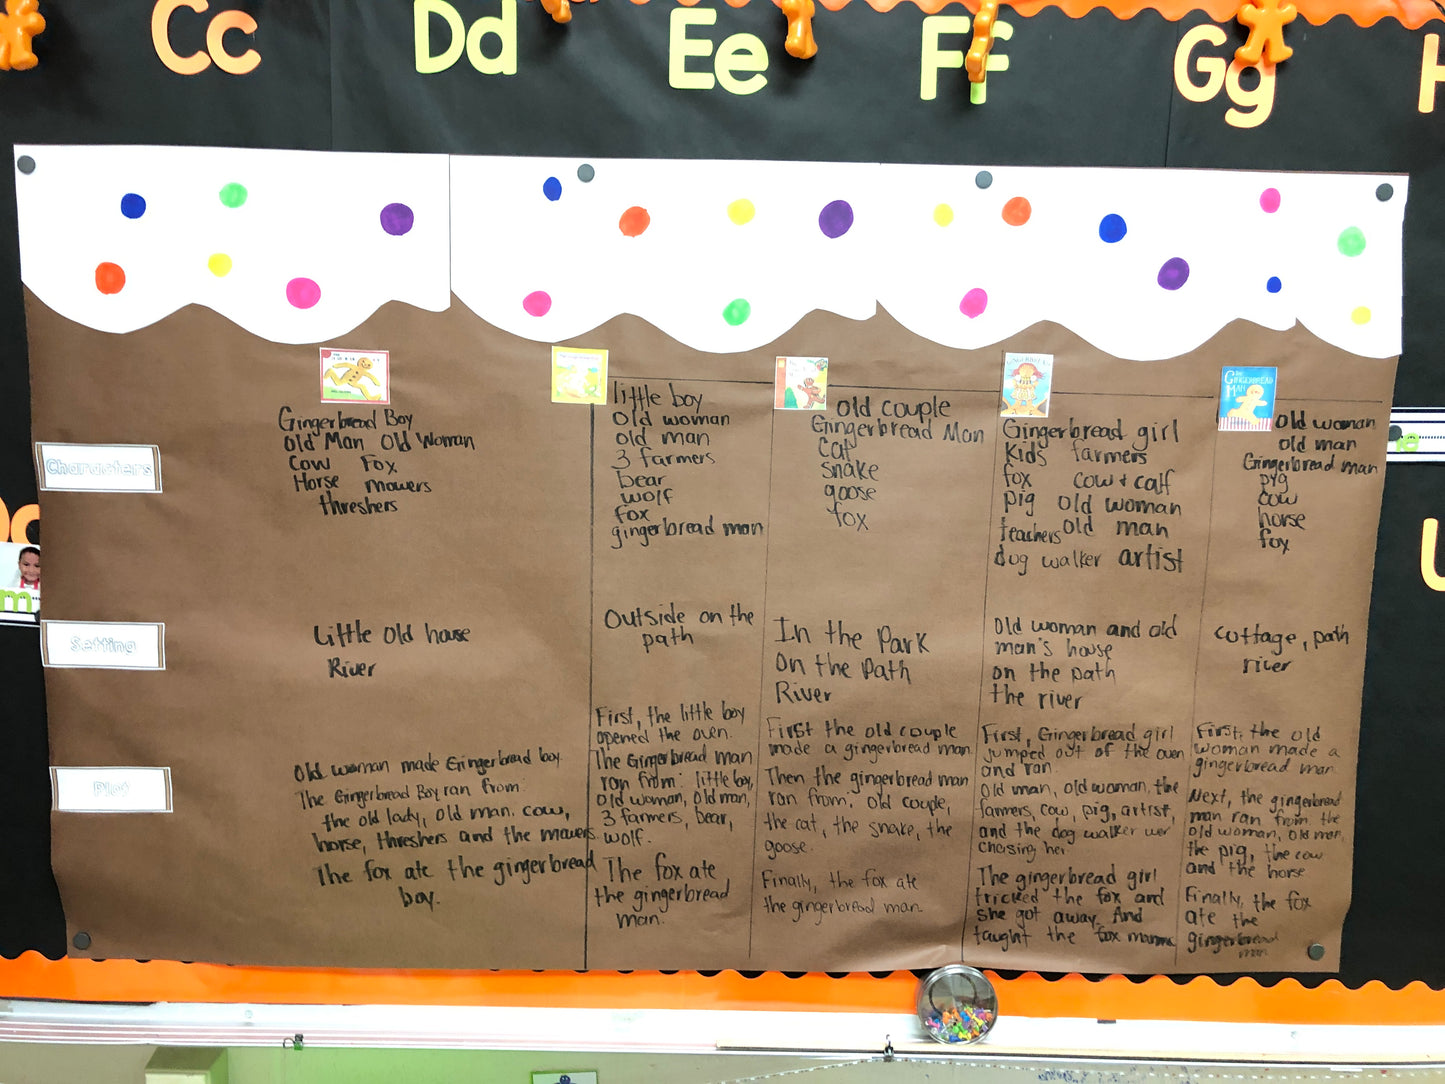 Cc Dd Ee Ff Gg H
GINGERBREAD
THE
GINGERBREAD
MAN
Characters
Gingerbread Boy
Old Man Old Woman
Cow Fox
Horse mowers
threshers
little boy
Old woman
old man
3 farmers
bear
wolf
fox
gingerbread man
old couple
Gingerbread Man
Cat
snake
goose
fox
Gingerbread girl
Kids farmers
fox cow + calf
pig old woman
teachers old man
dog walker artist
old woman
old man
Gingerbread man
pig
cow
horse
fox
Setting
Little old house
River
Outside on the
path
In the Park
On the Path
River
Old woman and old
man's house
on the path
the river
cottage, path
river
Plot
Old woman made Gingerbread boy.
The Gingerbread Boy ran from:
the old lady, old man, cow,
horse, threshers and the mowers.
The fox ate the gingerbread
boy.
First, the little boy
opened the oven.
The Gingerbread man
ran from: little boy,
Old woman, Old man,
3 farmers, bear,
wolf.
The fox ate
the gingerbread
man.
First the old couple
made a gingerbread man.
Then the gingerbread man
ran from: old couple,
the cat, the snake, the
goose.
Finally, the fox ate
the gingerbread man.
First, Gingerbread girl
jumped out of the oven
and ran.
Old man, old woman, the
farmers, cow, pig, artist,
and the dog walker wer
chasing her.
The gingerbread girl
tricked the fox and
she got away. And
taught the fox
First, the old
woman made a
gingerbread man.
Next, the gingerbread
man ran from the
old woman, old man,
the pig, the cow
and the horse
Finally, the fox
ate the
gingerbread
man
m
e